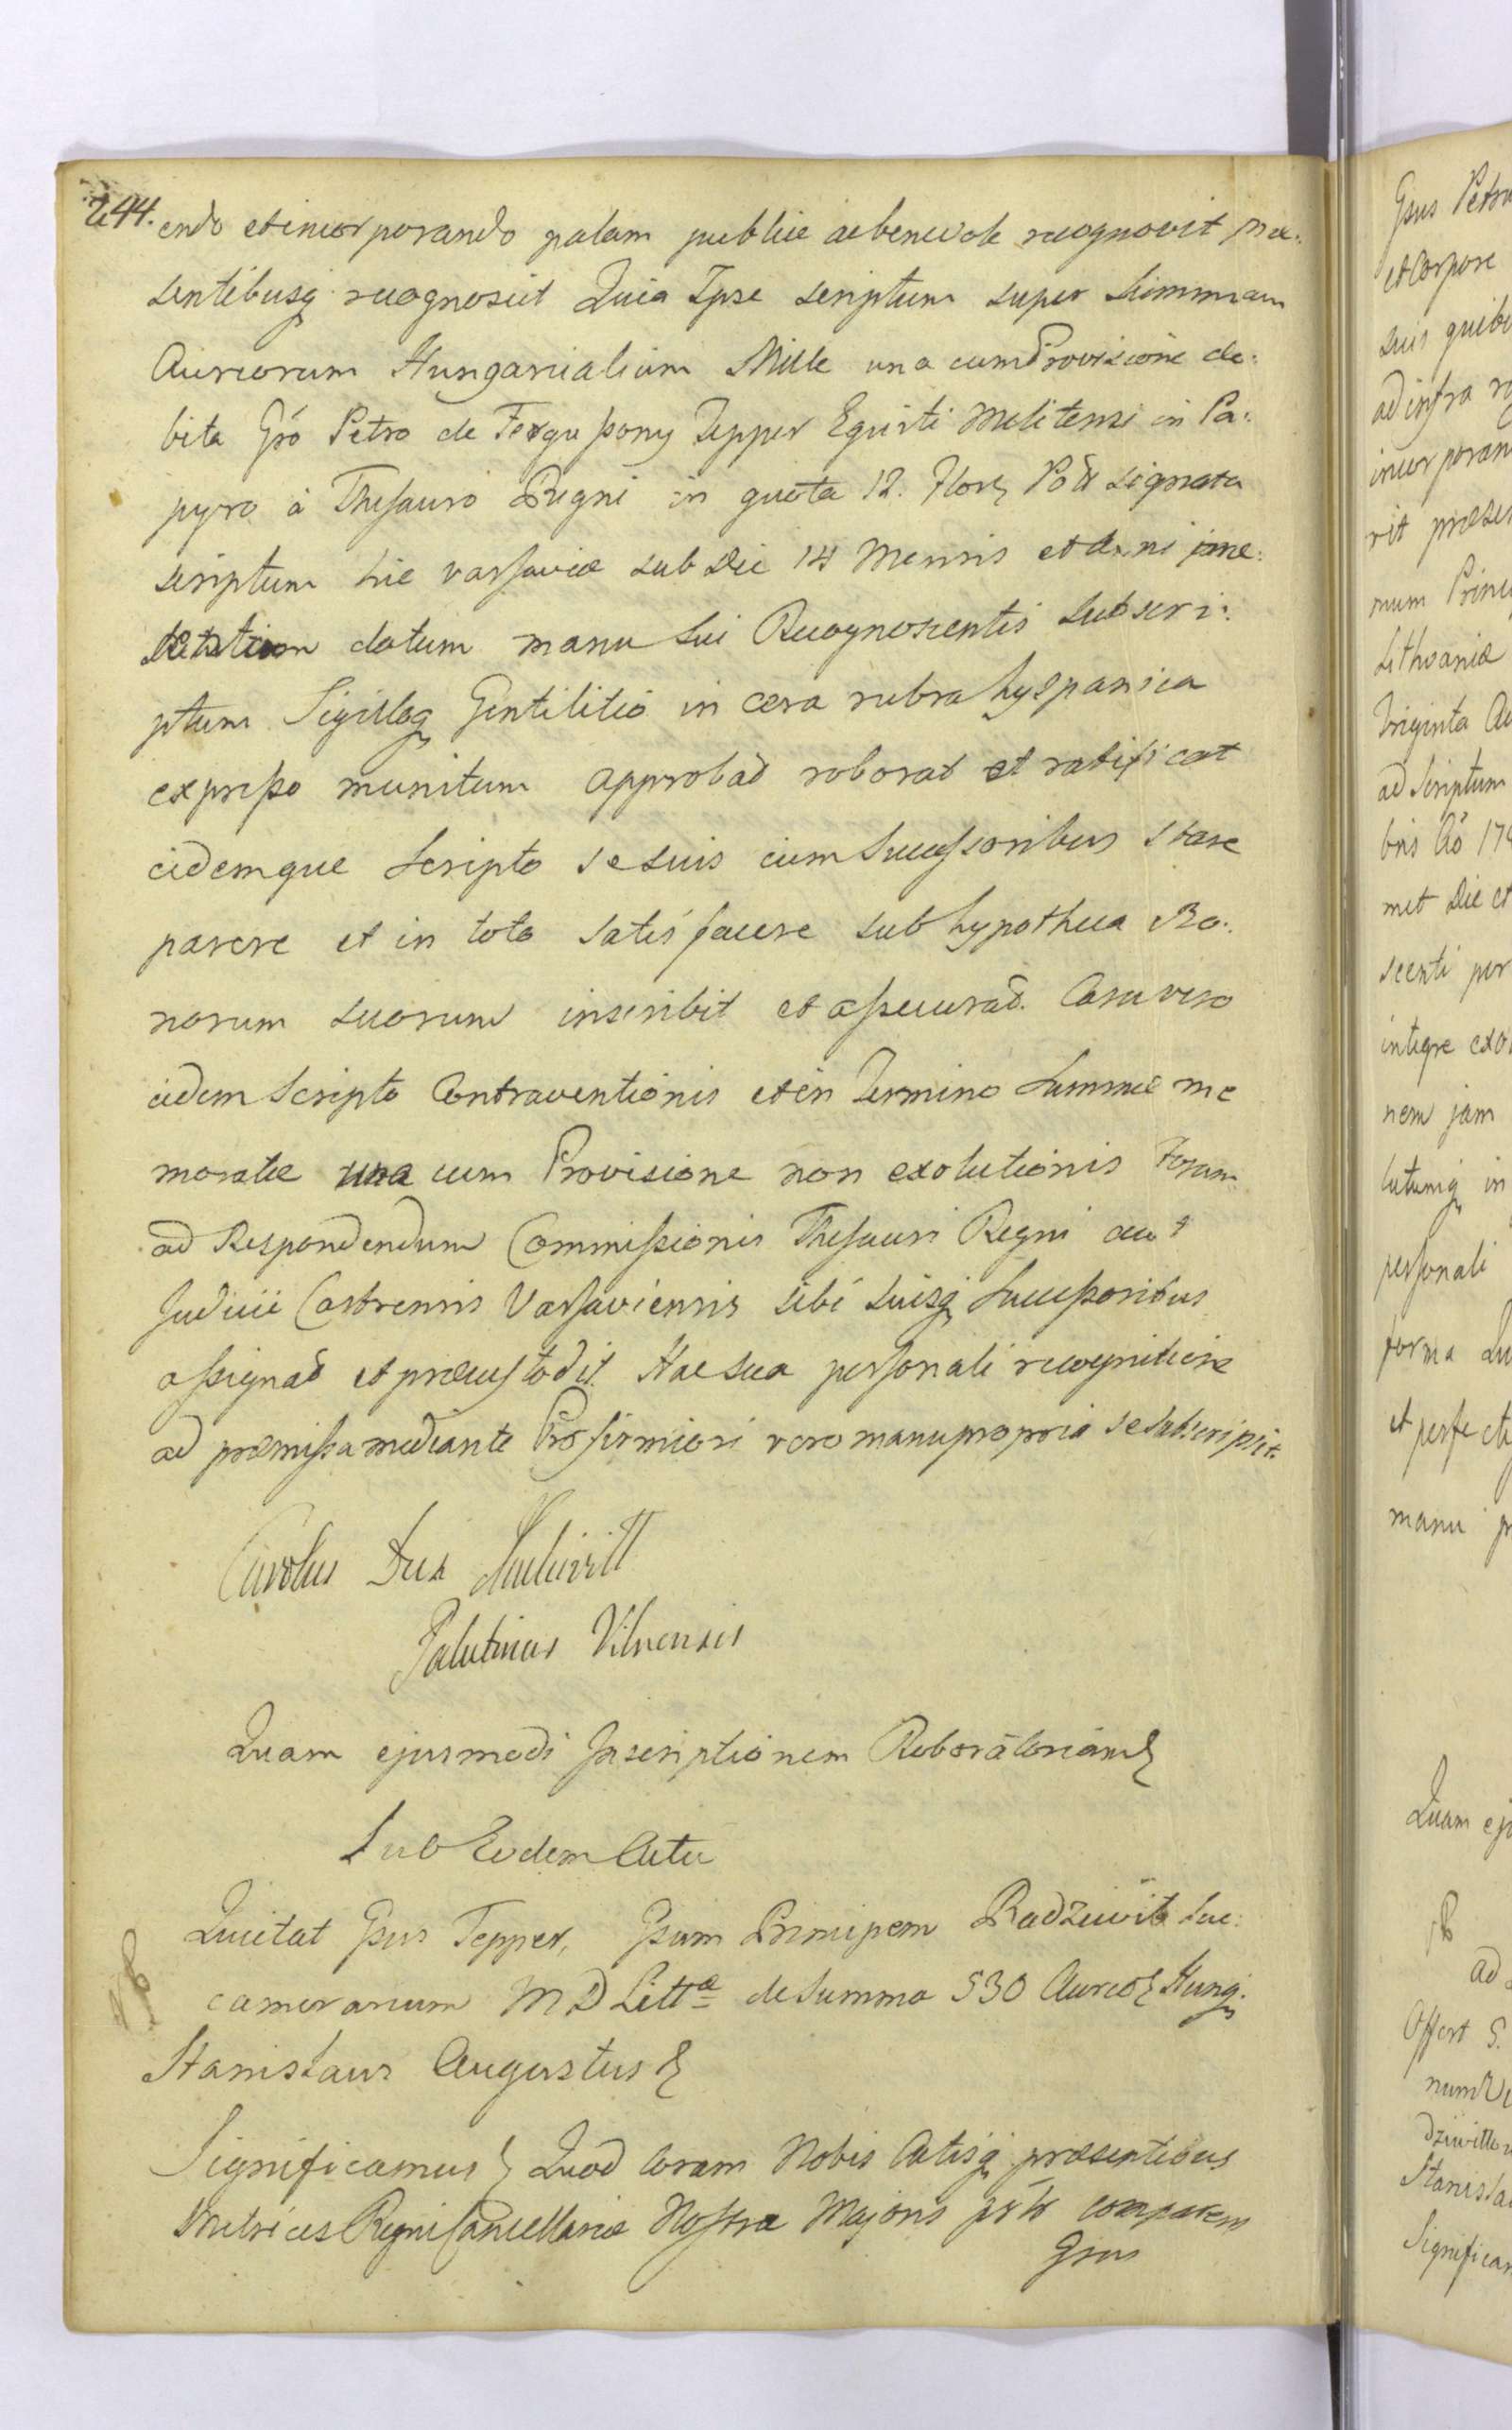 244. endo et incorporando palam publice ac benevole recognovit præ:
sentibusq recognoscit Quia Ipse scriptum super Summam
Aureorum Hungaricalium Mille una cum Provisione de:
bita Gró Petro de Fergusſony Tepper Equiti Melitensi in Pa:
pyro á Theſauro Regni in quota 12. Flor Pol signata
scriptum hic varſaviæ sub die 14 Mensis et anni
datum manu Sui Recognoscentis Subscri:
ptum Sigilloq Gentilitio in cera rubra hyspanica
expreſso munitum approbat roborat et ratificat
eidemque Scripto se suis cum Succeſsoribus stare
parere et in toto satisfacere sub hypotheca Bo:
norum suorum inscribit et aſsecurat. Casu vero
eidem Scripto Contraventionis et in Termino Summæ me
moratæ una cum Provisione non exolutionis Forum
ad Respondendum Commiſsionis Theſauri Regni aut
Judicii Castrensis Varſaviensis sibi suisq Succeſsoribus
aſsignat et præcuſtodit. Hac sua perſonali recognitione
ad præmiſsa mediante Pro firmiori vero manu propria se subscripsit.
Carolus Dux Radziwill
Palatinus Vilnensis
Quam ejusmodi Inscriptionem Roboratoriam
Sub Eodem Actu
Quietat Gsus Tepper, Gsum Principem Radziwił Suc:
camerarium M D Littæ de Summa 530 Aureo Hung:
Stanislaus Augustus
Significamus Quod Coram Nobis Actisq præsentibus
Metrices Regni Cancellariæ Noſtræ Majoris comparens
Gsus
Gsus
et Corpore
suis
ad infra
incorporan
rit
mum
Lithvaniæ
Triginta
ad Scriptum
bris Aõ
met Die et
scenti per
integre
nem jam
in
perſonali
forma
et
manu
Quam
ad
Offert S.
Significam